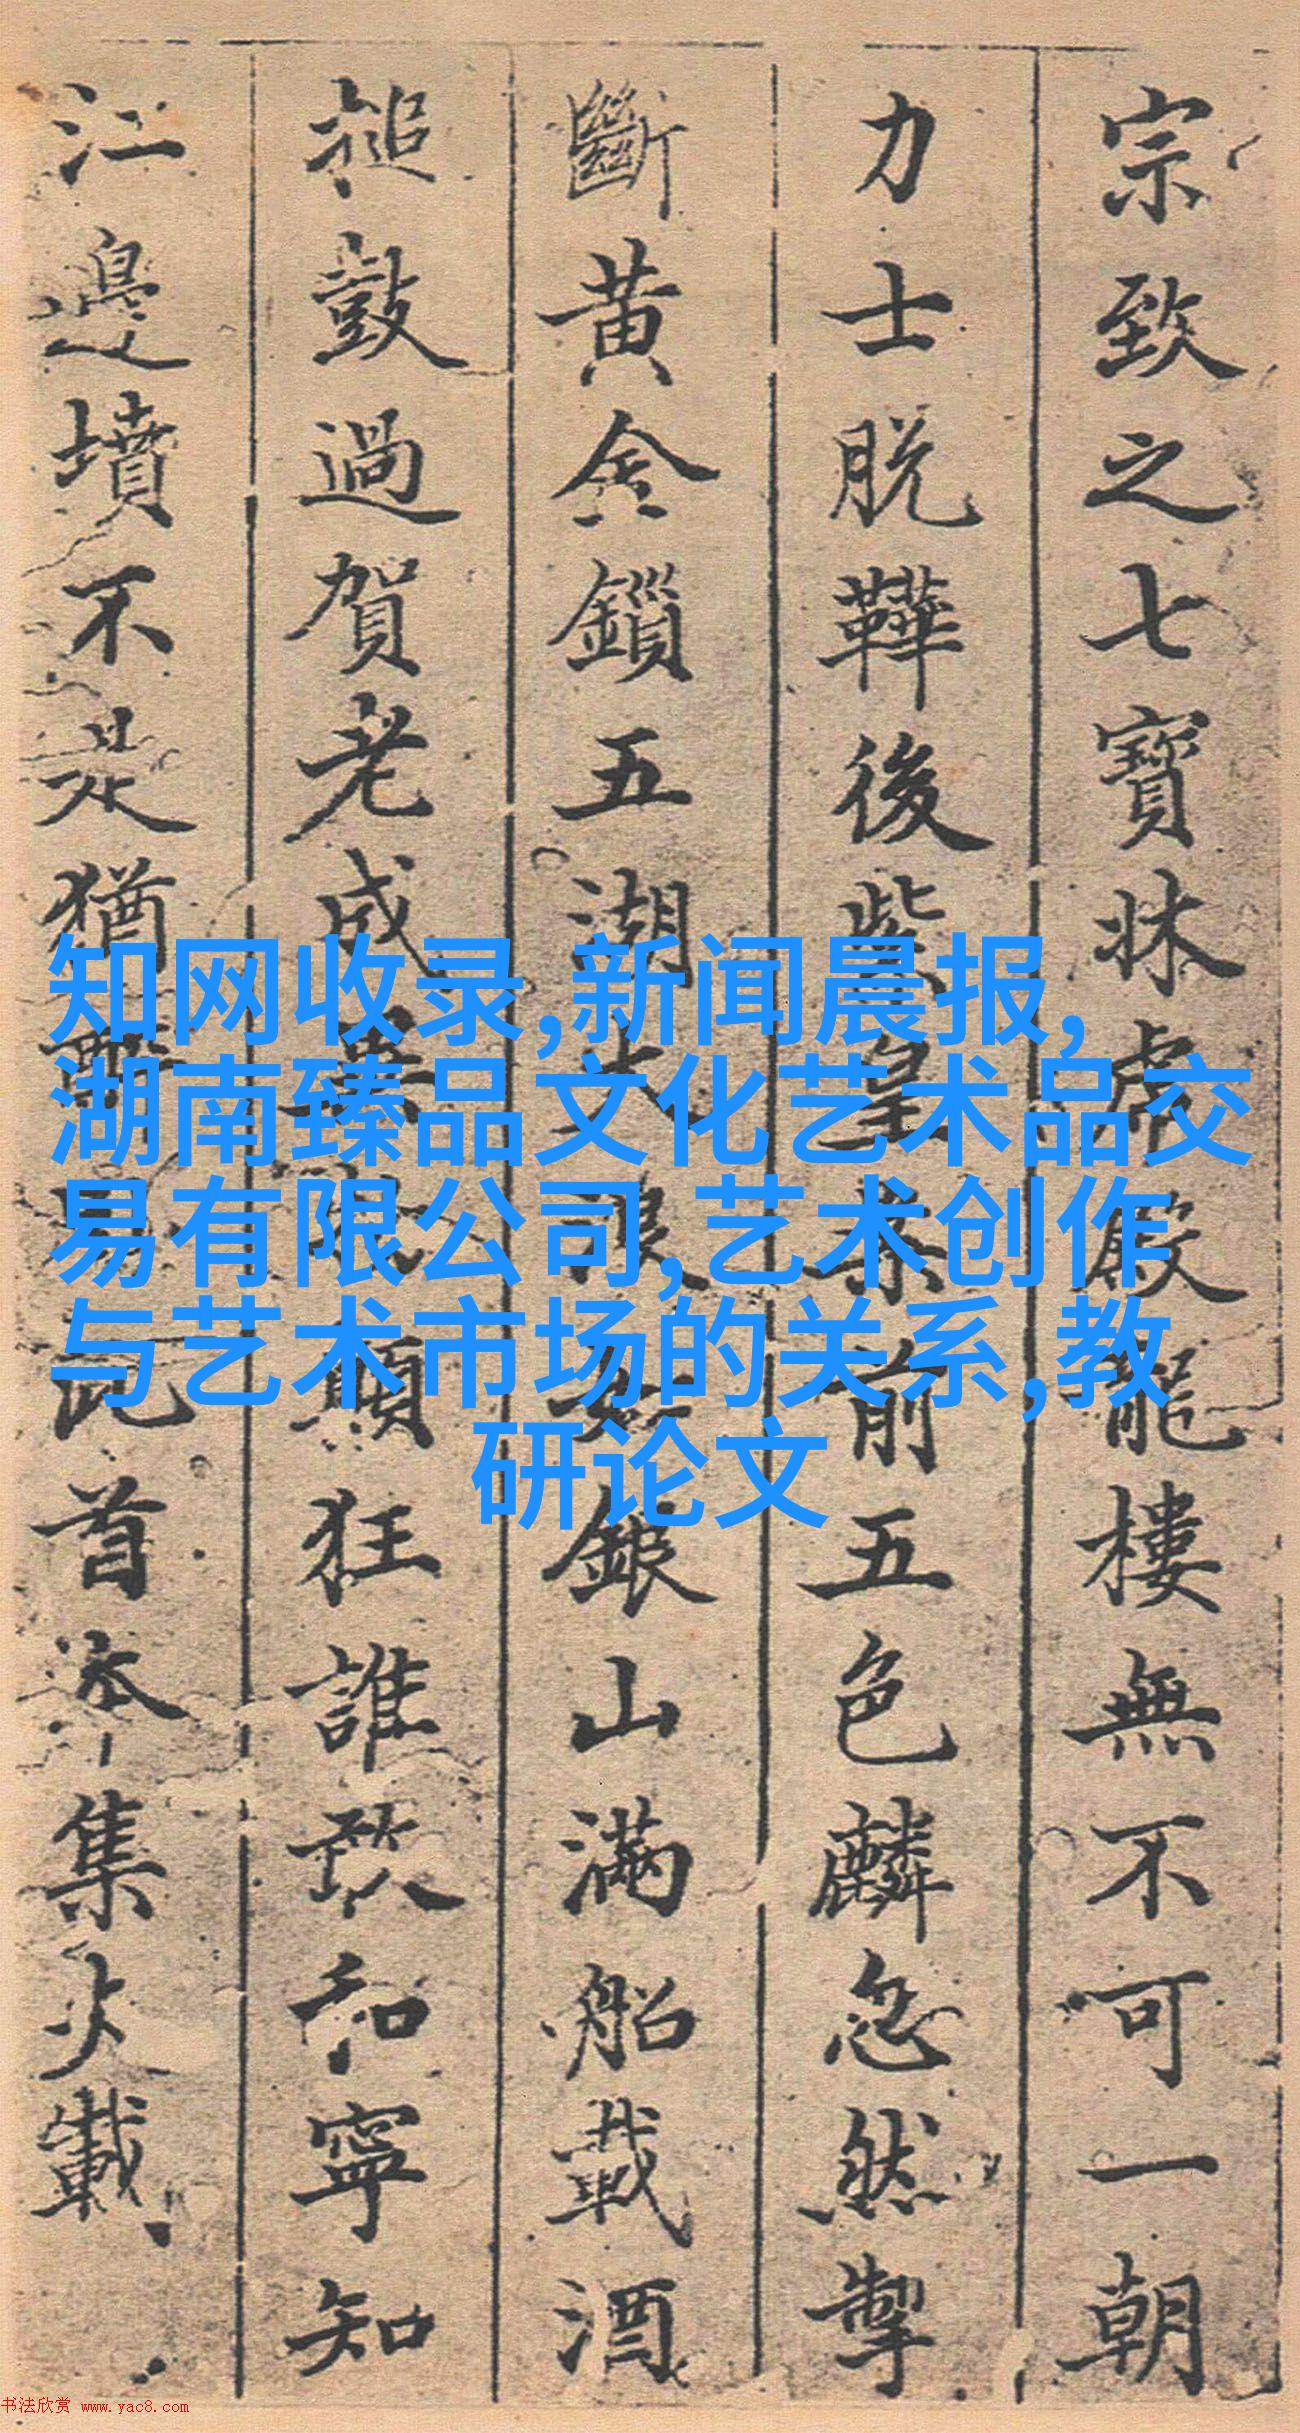 宗致之七寶牀虎殿龍樓無不可一朝
力士脱鞾後紫皇案前五色麟忽然掣
斷黃金鎖五湖大浪如銀山滿船載酒
槌鼓過賀老成異物顛狂誰敢和寧知
江邊墳不是猶醉此首本集失載
知网收录,新闻晨报,
湖南臻品文化艺术品交
易有限公司,艺术创作
与艺术市场的关系,教
研论文
书法欣赏 www.yac8.com